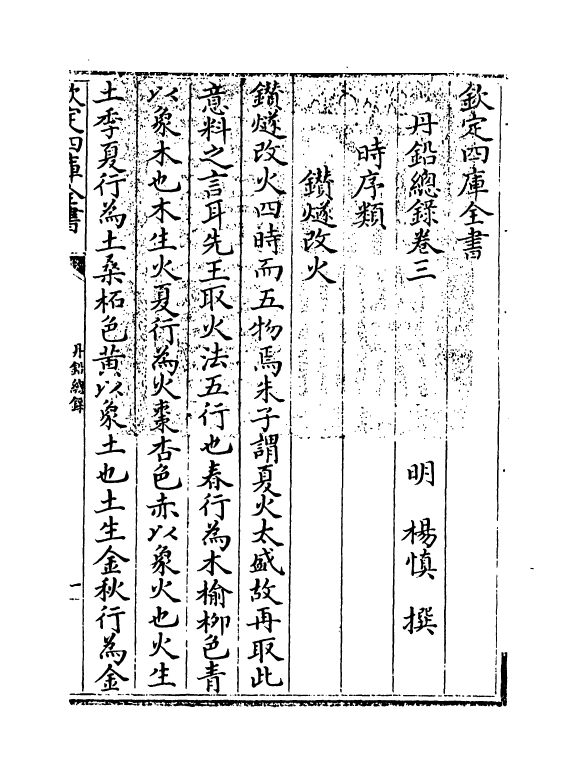 欽定四庫全書
丹鉛總錄卷三
明 楊慎 撰
時序類
鑚燧改火
鑚燧改火四時而五物焉朱子謂夏火太盛故再取此
意料之言耳先王取火法五行也春行為木榆栁色青
以象木也木生火夏行為火棗杏色赤以象火也火生
土季夏行為土桑柘色黄以象土也土生金秋行為金
欽定四庫全書
丹鉛總録
一